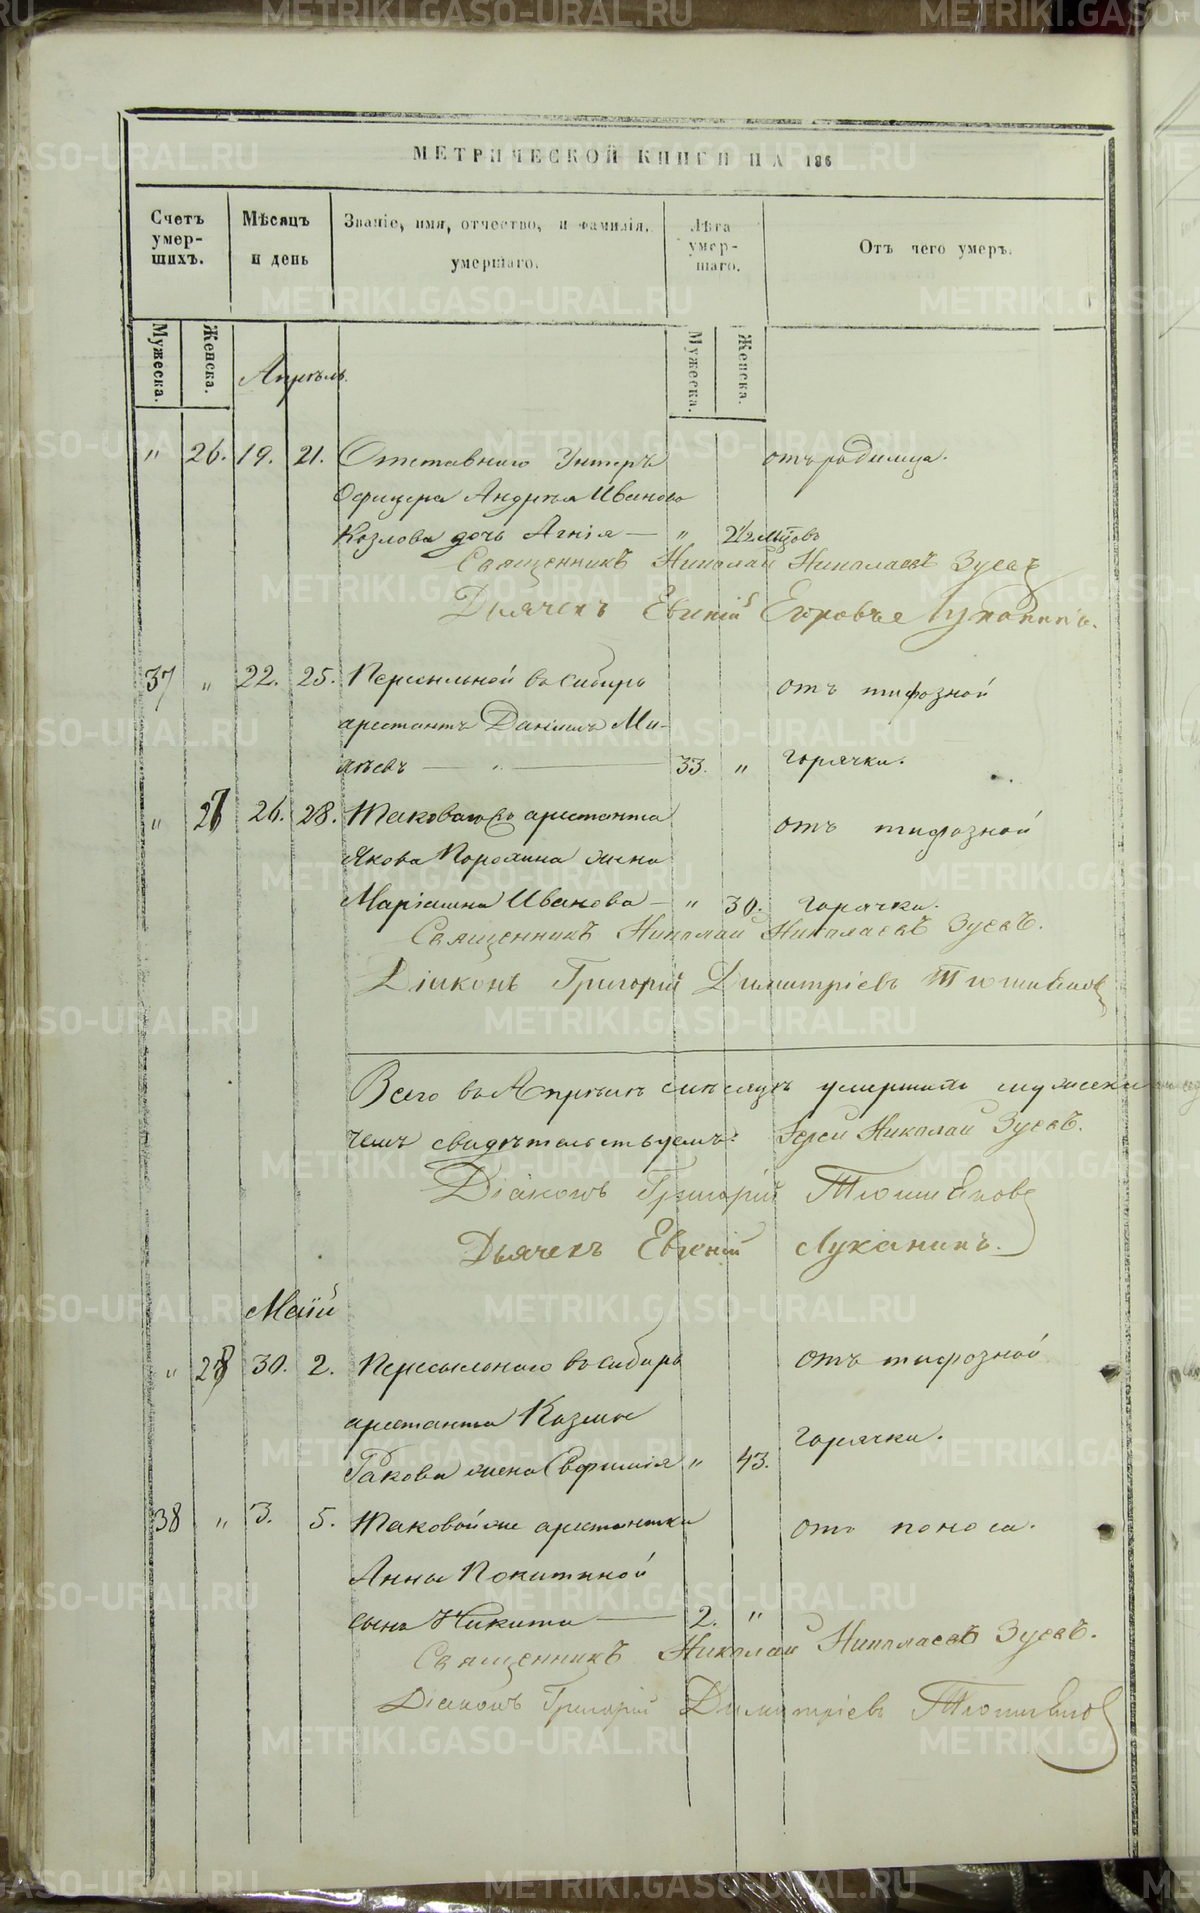 МЕТРИЧЕСКОЙ КНИГИ НА 186
Счетъ умер- шихъ.
Мѣсяцъ и день
Званіе, имя, отчество, и фамилія, умершаго.
Лѣта умер- шаго.
Отъ чего умеръ.
Мужеска.
Женска.
Мужеска.
Женска.
Апрѣль.
" 26. 19. 21. Отставнаго Унтеръ отъ родимца.
Офицера Андрѣя Иванова
Козлова дочь Агнія — " 2 1/2 мѣсцовъ
Священникъ Николай Николаевъ Зуевъ
Дьячекъ Евгеній Егоровъ Луканинъ.
37 " 22. 25. Пересыльной въ Сибирь отъ тифозной
арестантъ Даніилъ Ми-
нѣевъ — 33. " горячки.
" 27 26. 28. Таковаго же арестанта отъ тифозной
Якова Порохина жена
Маріамна Иванова — " 30. горячки.
Священникъ Николай Николаевъ Зуевъ.
Діаконъ Григорій Димитріевъ
Всего въ Апрѣлѣ мѣсяцѣ умершихъ мужеска
чемъ свидѣтельствуемъ: Іерей Николай Зуевъ.
Діаконъ Григорій
Дьячекъ Евгеній Луканинъ.
Маій
" 28 30. 2. Пересыльнаго въ Сибирь отъ тифозной
арестанта Козмы горячки.
Ракова жена Евфимія " 43.
38 " 3. 5. Таковой же арестантки отъ поноса.
Анны Покитиной
сынъ Никита — 2. "
Священникъ Николай Николаевъ Зуевъ.
Діаконъ Григорій Димитріевъ
METRIKI.GASO-URAL.RU